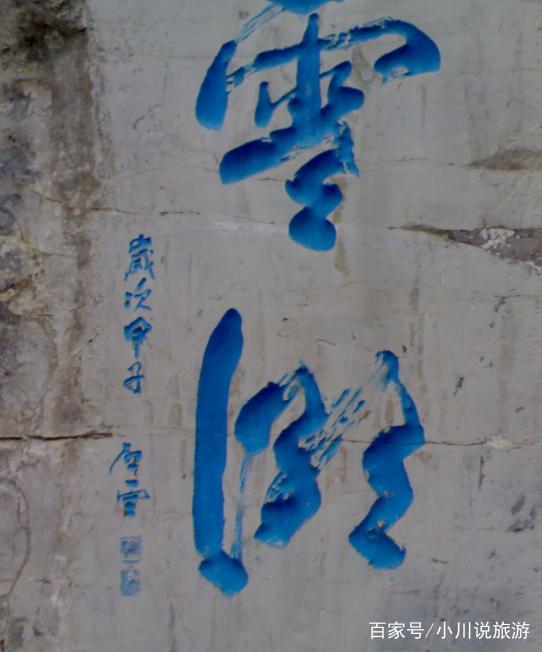 雲
歲次甲子 唐雲
百家号/小川说旅游